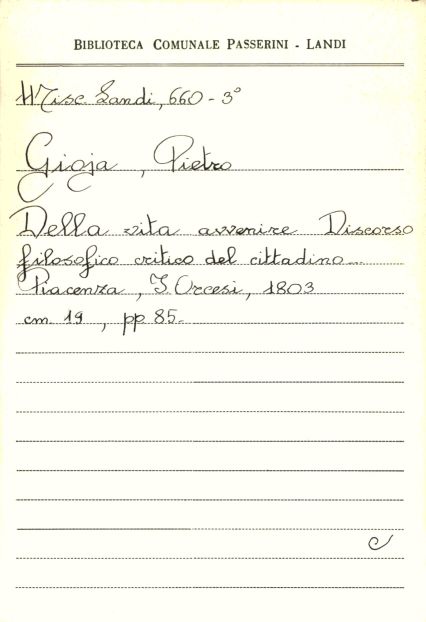 BIBLIOTECA COMUNALE PASSERINI - LANDI
Misc. Landi, 660 - 3°
Gioja, Pietro
Della vita avvenire Discorso
filosofico critico del cittadino...
Piacenza, I. Orcesi, 1803
cm. 19, pp. 85.
C